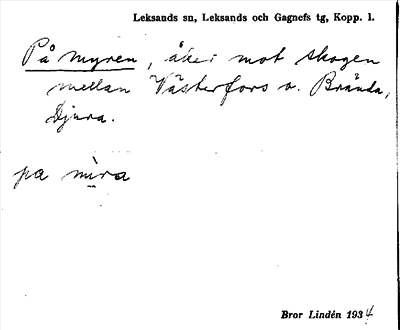 Leksands sn, Leksands och Gagnefs tg, Kopp. l.
På myren, åker mot skogen
mellan Västerfors o. Brända,
Djura.
pa mìra
Bror Lindén 1934